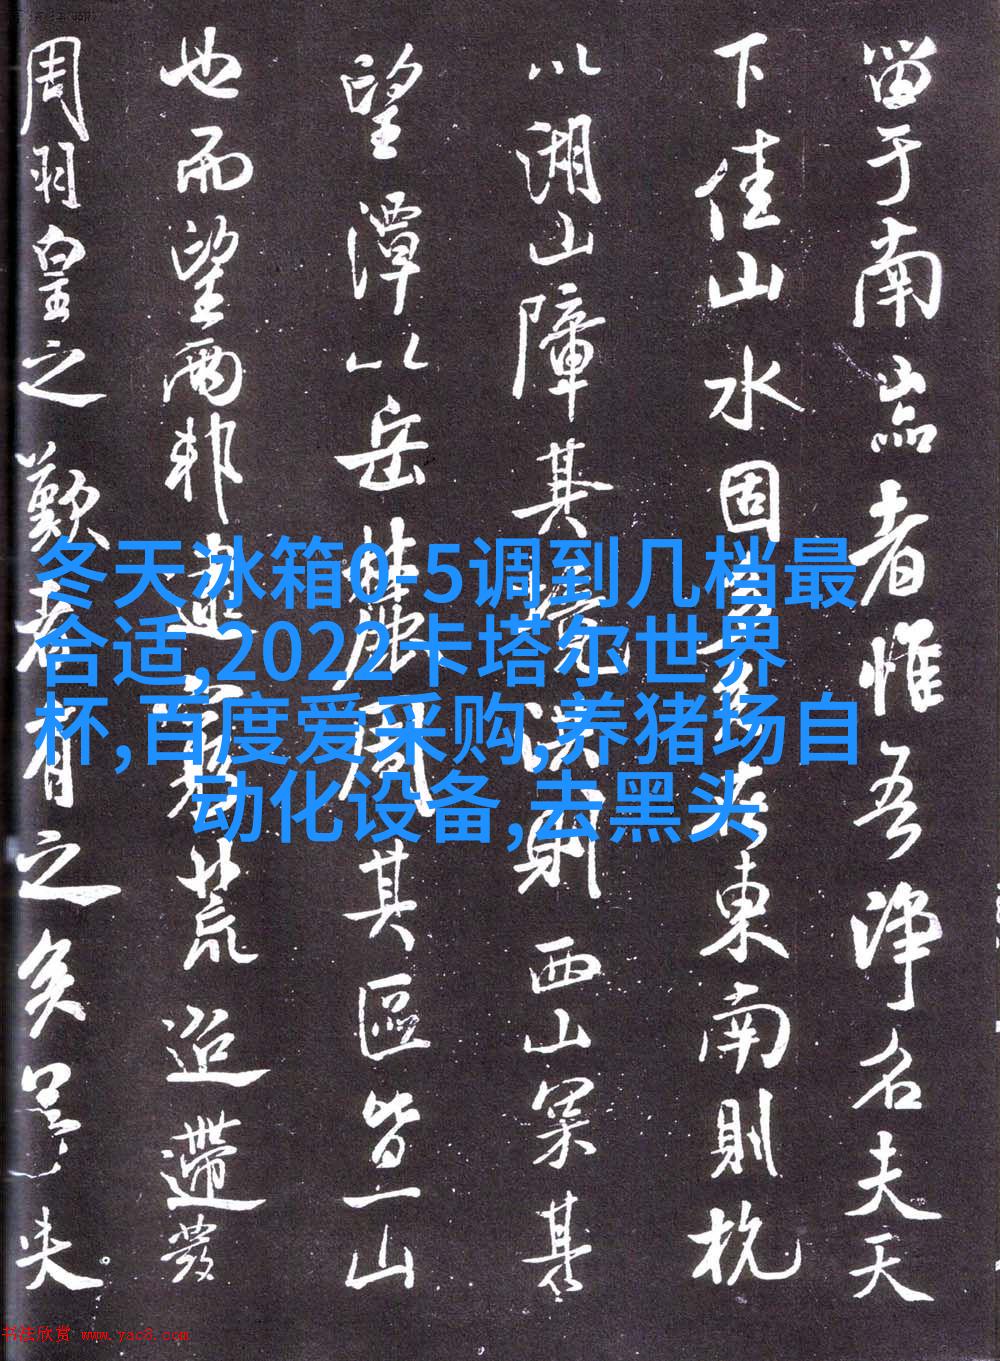 留于南京者惟吾净名夫天
下佳山水固 东南则杭
以湖山障其 则西山冥其
望潭以岳麓风其區皆一山
也而望兩邦 荒迢遰發
周羽皇之歎者有之矣 夫
冬天冰箱0-5调到几档最
合适,2022卡塔尔世界
杯,百度爱采购,养猪场自
动化设备,去黑头
书法欣赏 www.yac8.com